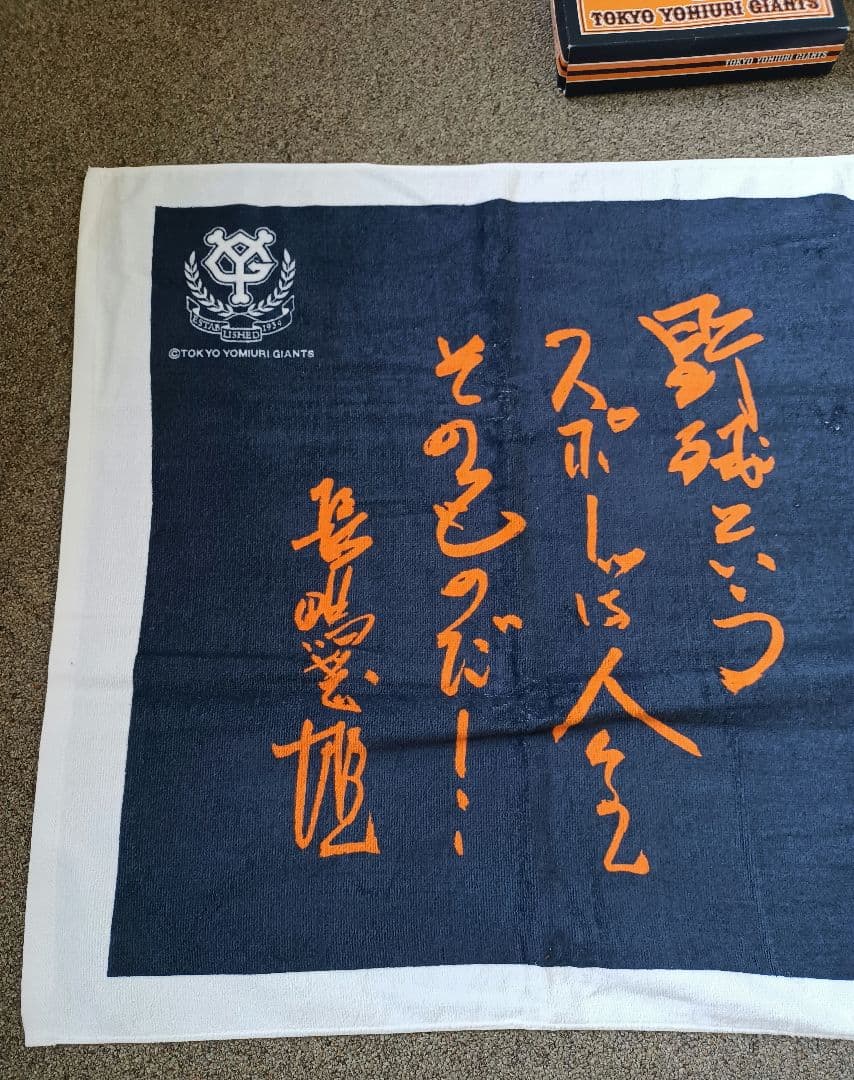 TOKYO YOMIURI GIANTS
TOKYO YOMIURI GIANTS
YG
ESTABLISHED 1934
©TOKYO YOMIURI GIANTS
野球という
スポーツは人生
そのものだ！…
長嶋茂雄